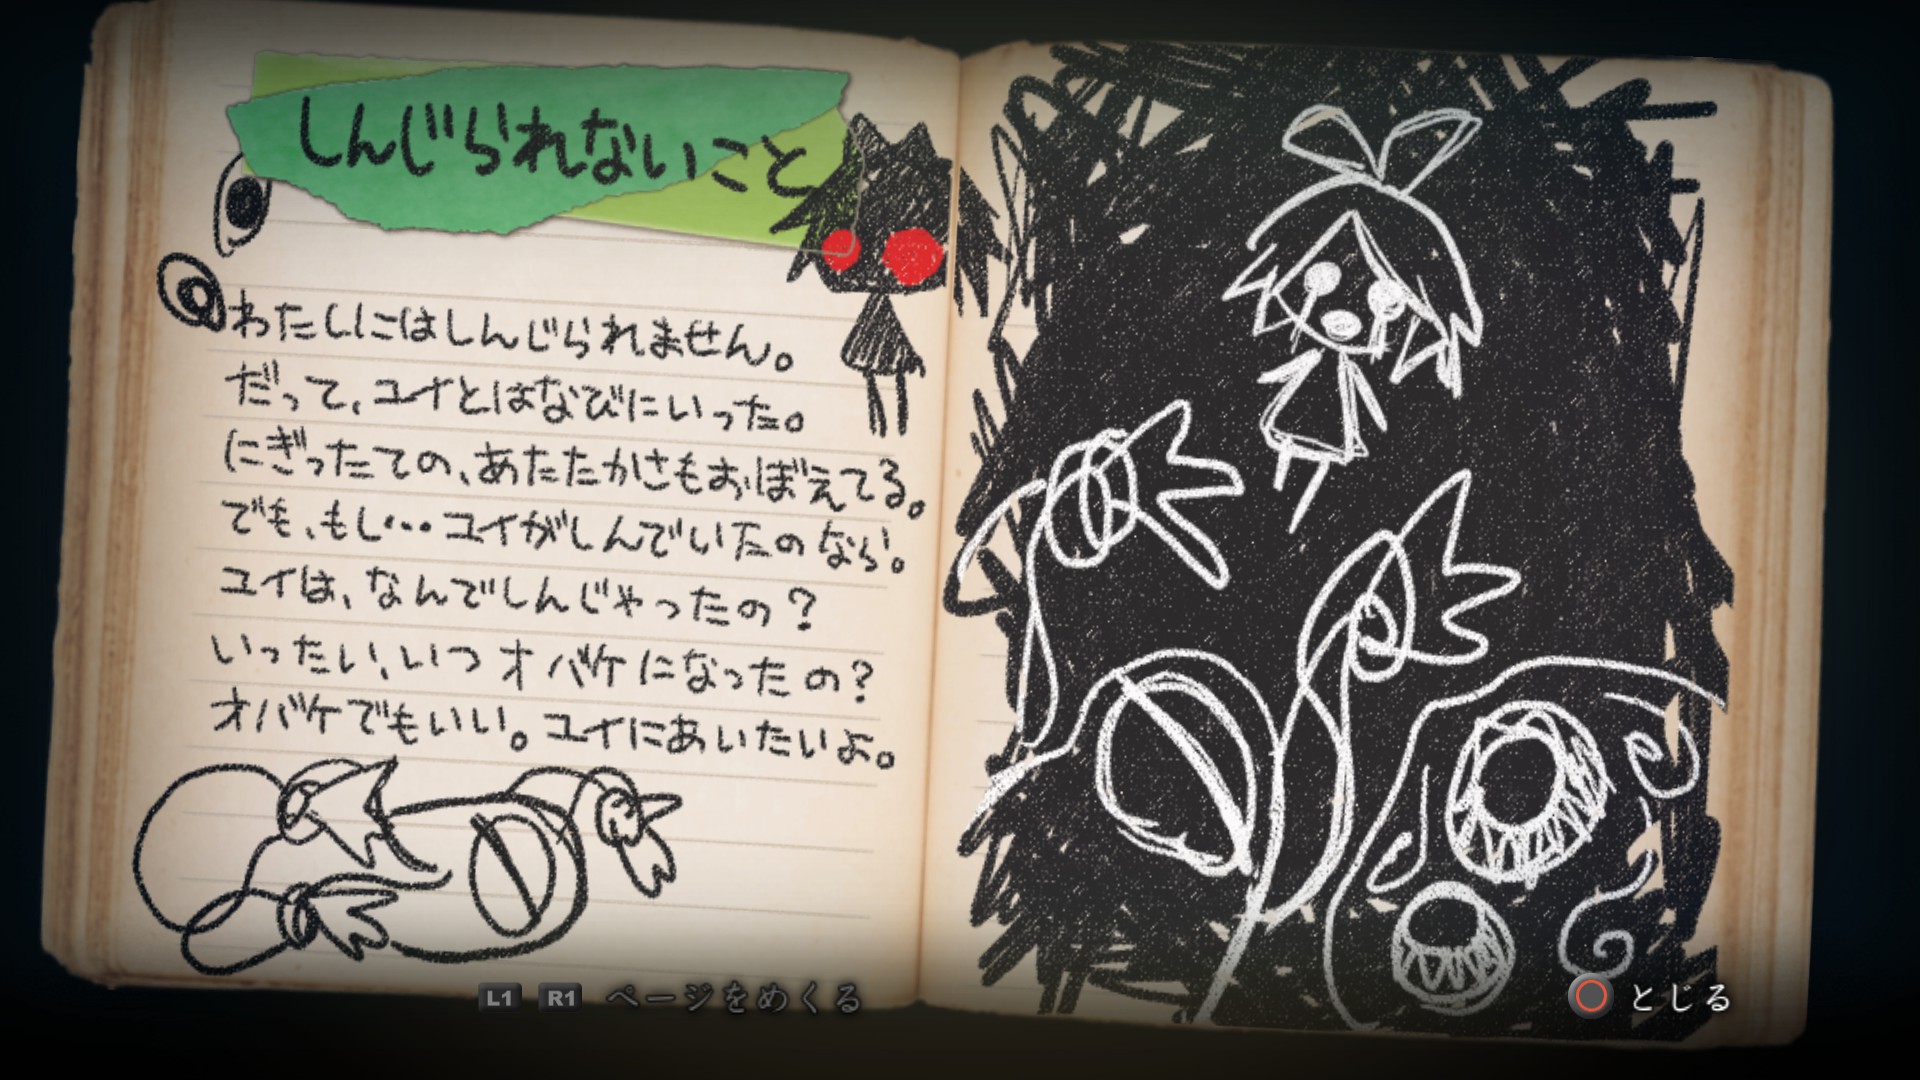 しんじられないこと
わたしにはしんじられません。
だって、ユイとはなびにいった。
にぎったての、あたたかさもおぼえてる。
でも、もし…ユイがしんでいたのなら。
ユイは、なんでしんじゃったの？
いったい、いつオバケになったの？
オバケでもいい。ユイにあいたいよ。
L1 R1 ページをめくる
とじる